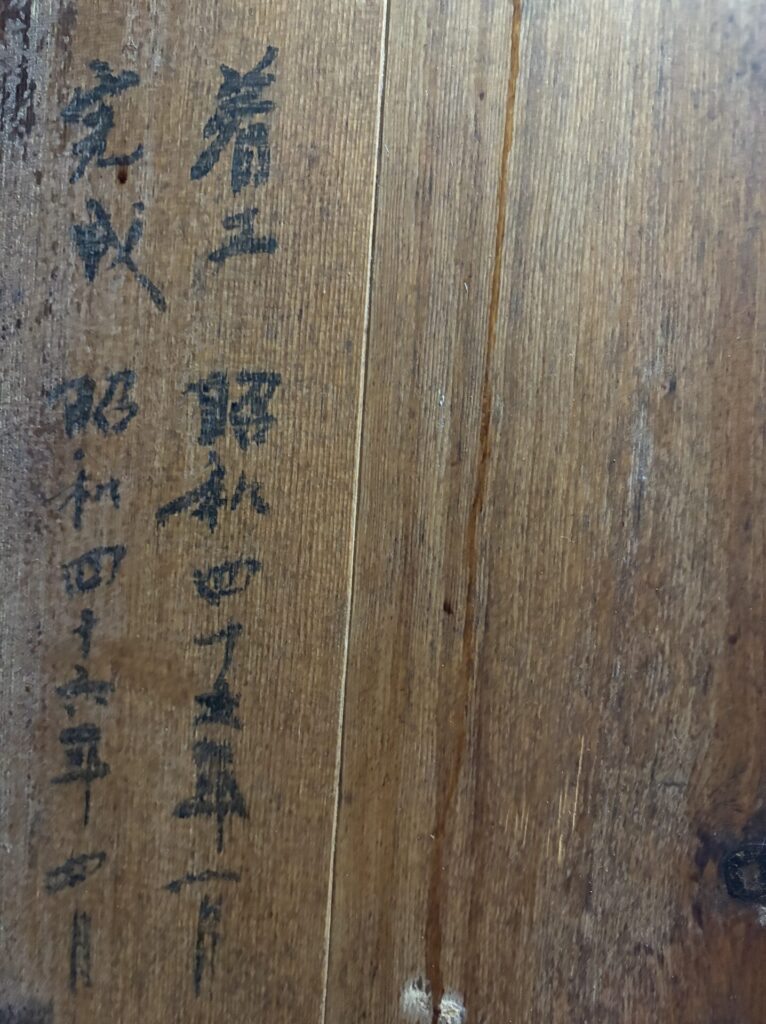 着工 昭和四十五年一月
完成 昭和四十六年四月